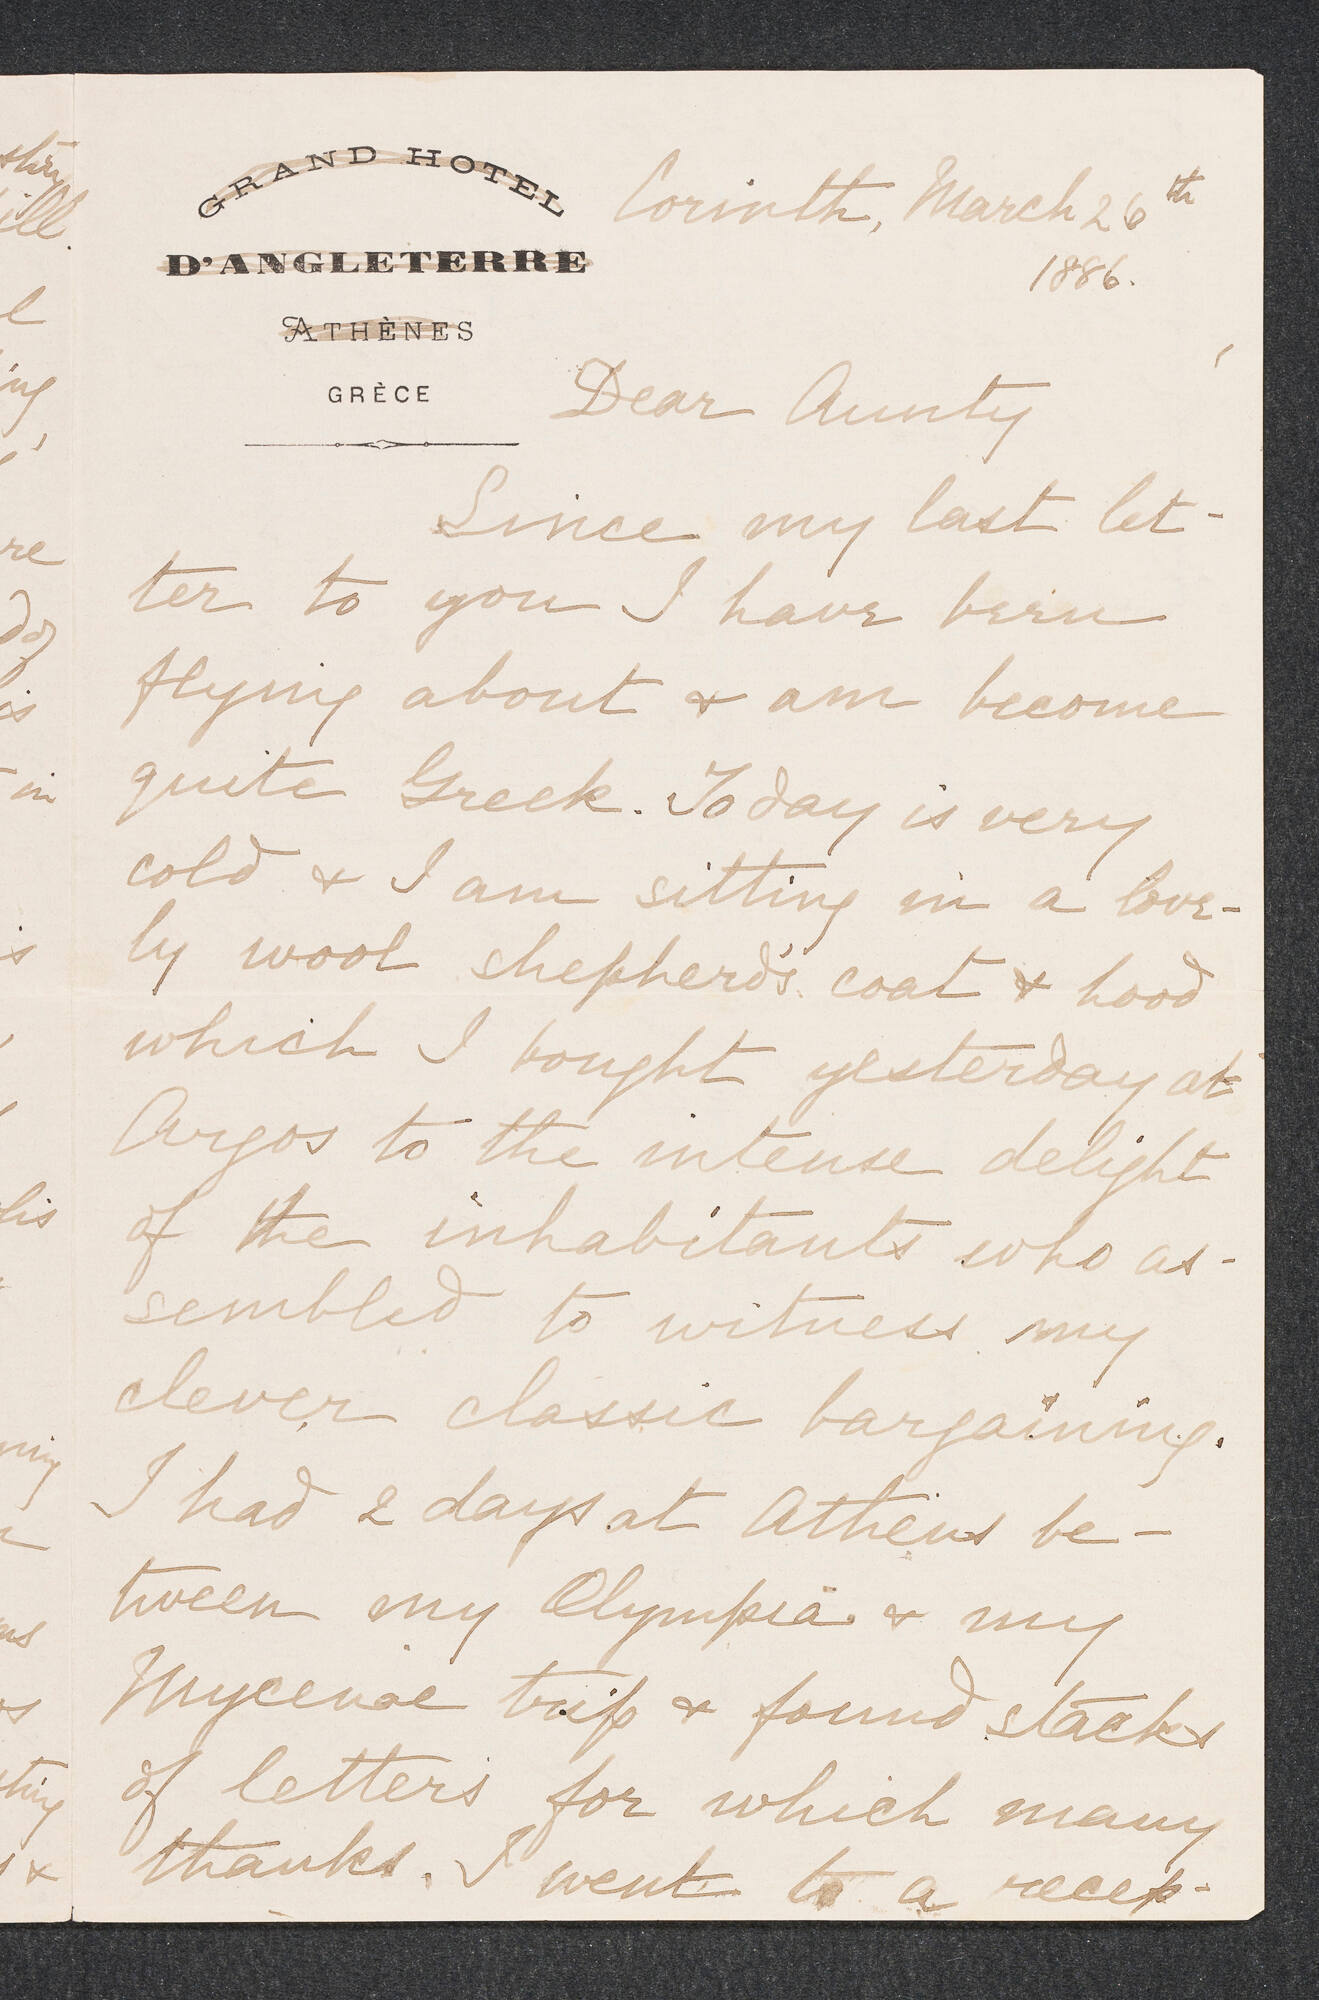 GRAND HOTEL
D'ANGLETERRE
ATHÈNES
GRÈCE
Corinth, March 26th
1886.
Dear Aunty
Since my last let-
ter to you I have been
flying about & am become
quite Greek. Today is very
cold & I am sitting in a love-
ly wool shepherd's coat & hood
which I bought yesterday at
Argos to the intense delight
of the inhabitants who as-
sembled to witness my
clever classic bargaining.
I had 2 days at Athens be-
tween my Olympia & my
Mycenae trip & found stacks
of letters for which many
thanks. I went to a recep-